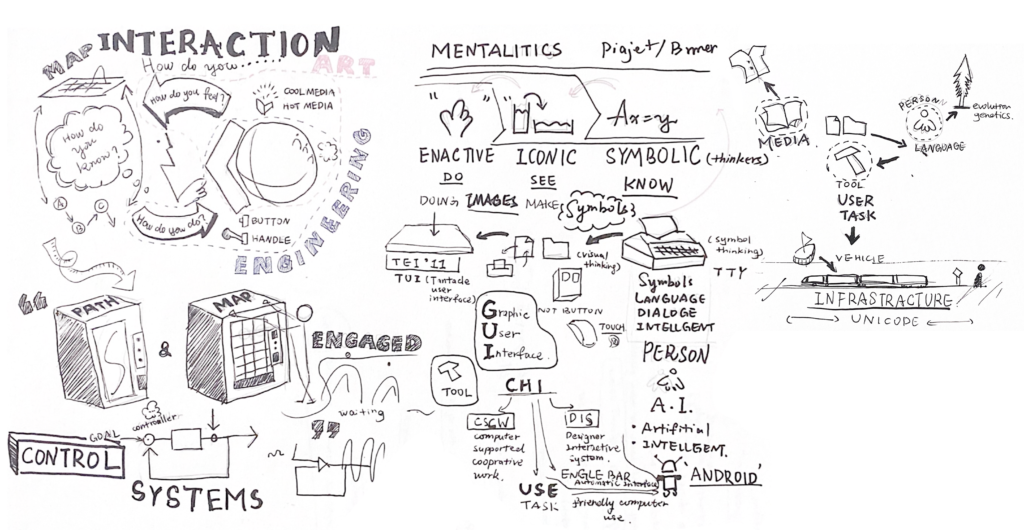 MAP
INTERACTION
How do you......
ART
How do you feel?
COOL MEDIA
HOT MEDIA
How do you know?
A
B
C
How do you do?
BUTTON
HANDLE
ENGINEERING
“
PATH
&
MAP
ENGAGED
waiting
”
controller
GOAL
CONTROL
SYSTEMS
MENTALITICS
Piajet/Brner
“ ”
Ax=y
ENACTIVE
ICONIC
SYMBOLIC (thinkers)
DO
SEE
KNOW
DOING IMAGES MAKE {Symbols}
TEI '11
TUI (Tintade user interface)
(visual thinking)
(symbol thinking)
TTY
DO
NOT BUTTON
TOUCH
Graphic
User
Interface.
Symbols
LANGUAGE
DIALOGE
INTELLGENT
PERSON
A.I.
• Artifitial
• INTELLGENT.
TOOL
CHI
CSCW
computer
supported
cooprative
work.
DIS
Designer
Interective
system.
ENGLE BAR
Automatic interface
USE
TASK
friendly computer
use.
'ANDROID'
MEDIA
PERSON
evolution
genetics.
LANGUAGE
TOOL
USER
TASK
VEHICLE
INFRASTRACTURE
UNICODE